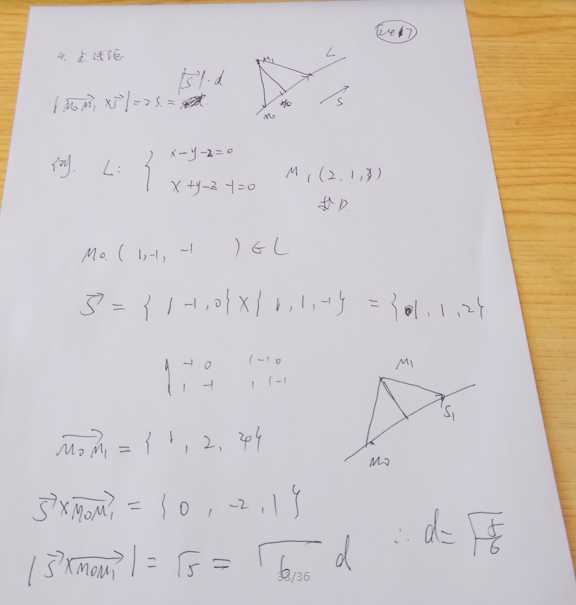 4. 点线距
|M₀M₁ × S| = 2S = |S|·d
M₁
L
M₀
S
例. L: { x-y-2=0
x+y-z-1=0
M₁(2,1,3)
求D
M₀(1,-1,-1) ∈ L
S = {1 -1,0}×{1,1,-1} = {1,1,2}
| -1 0 1 -1 0
1 -1 1 1 -1
M₁
S₁
M₀
M₀M₁ = {1, 2, 4}
S×M₀M₁ = {0, -2, 1}
|S×M₀M₁| = √5 = √6 d
∴ d = √5/6
33/36